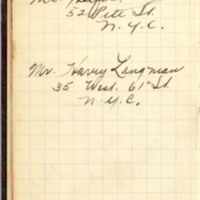 Mr.
52 Pitt St.
N.Y.C.
Mr. Harry Langman
35 West. 61st St.
N.Y.C.